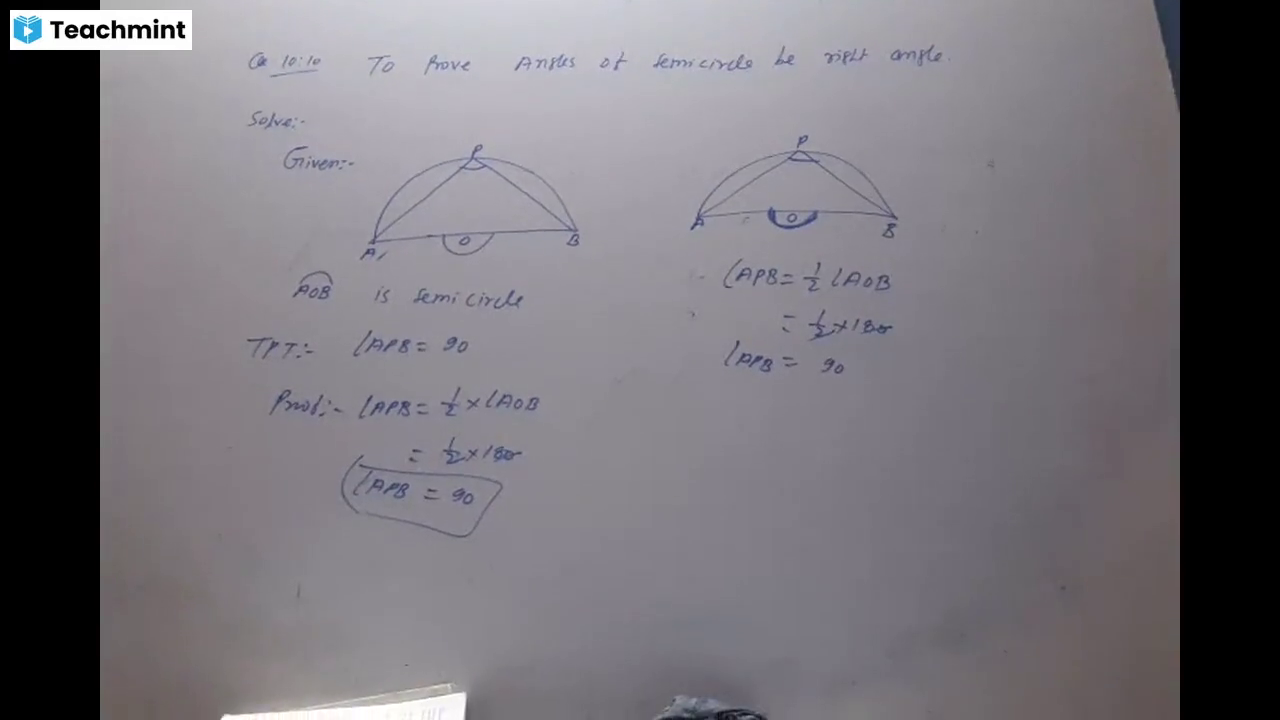 Teachmint
Q 10:10 To Prove Angles of semicircle be right angle.
Solve:-
Given:-
P
A
O
B
AOB is semicircle
TPT:- ∠APB = 90
Proof:- ∠APB = 1/2 × ∠AOB
= 1/2 × 180
∠APB = 90
P
A
O
B
∠APB = 1/2 ∠AOB
= 1/2 × 180
∠APB = 90